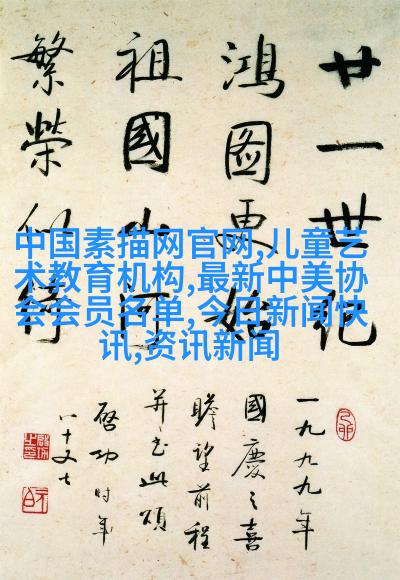 廿一世纪
鴻图更始
祖國山河
繁榮似
中国素描网官网,儿童艺
术教育机构,最新中美协
会会员名单,今日新闻快
讯,资讯新闻
一九九九年
國慶之喜
瞻望前程
并书此頌
啓功时年
八十又七